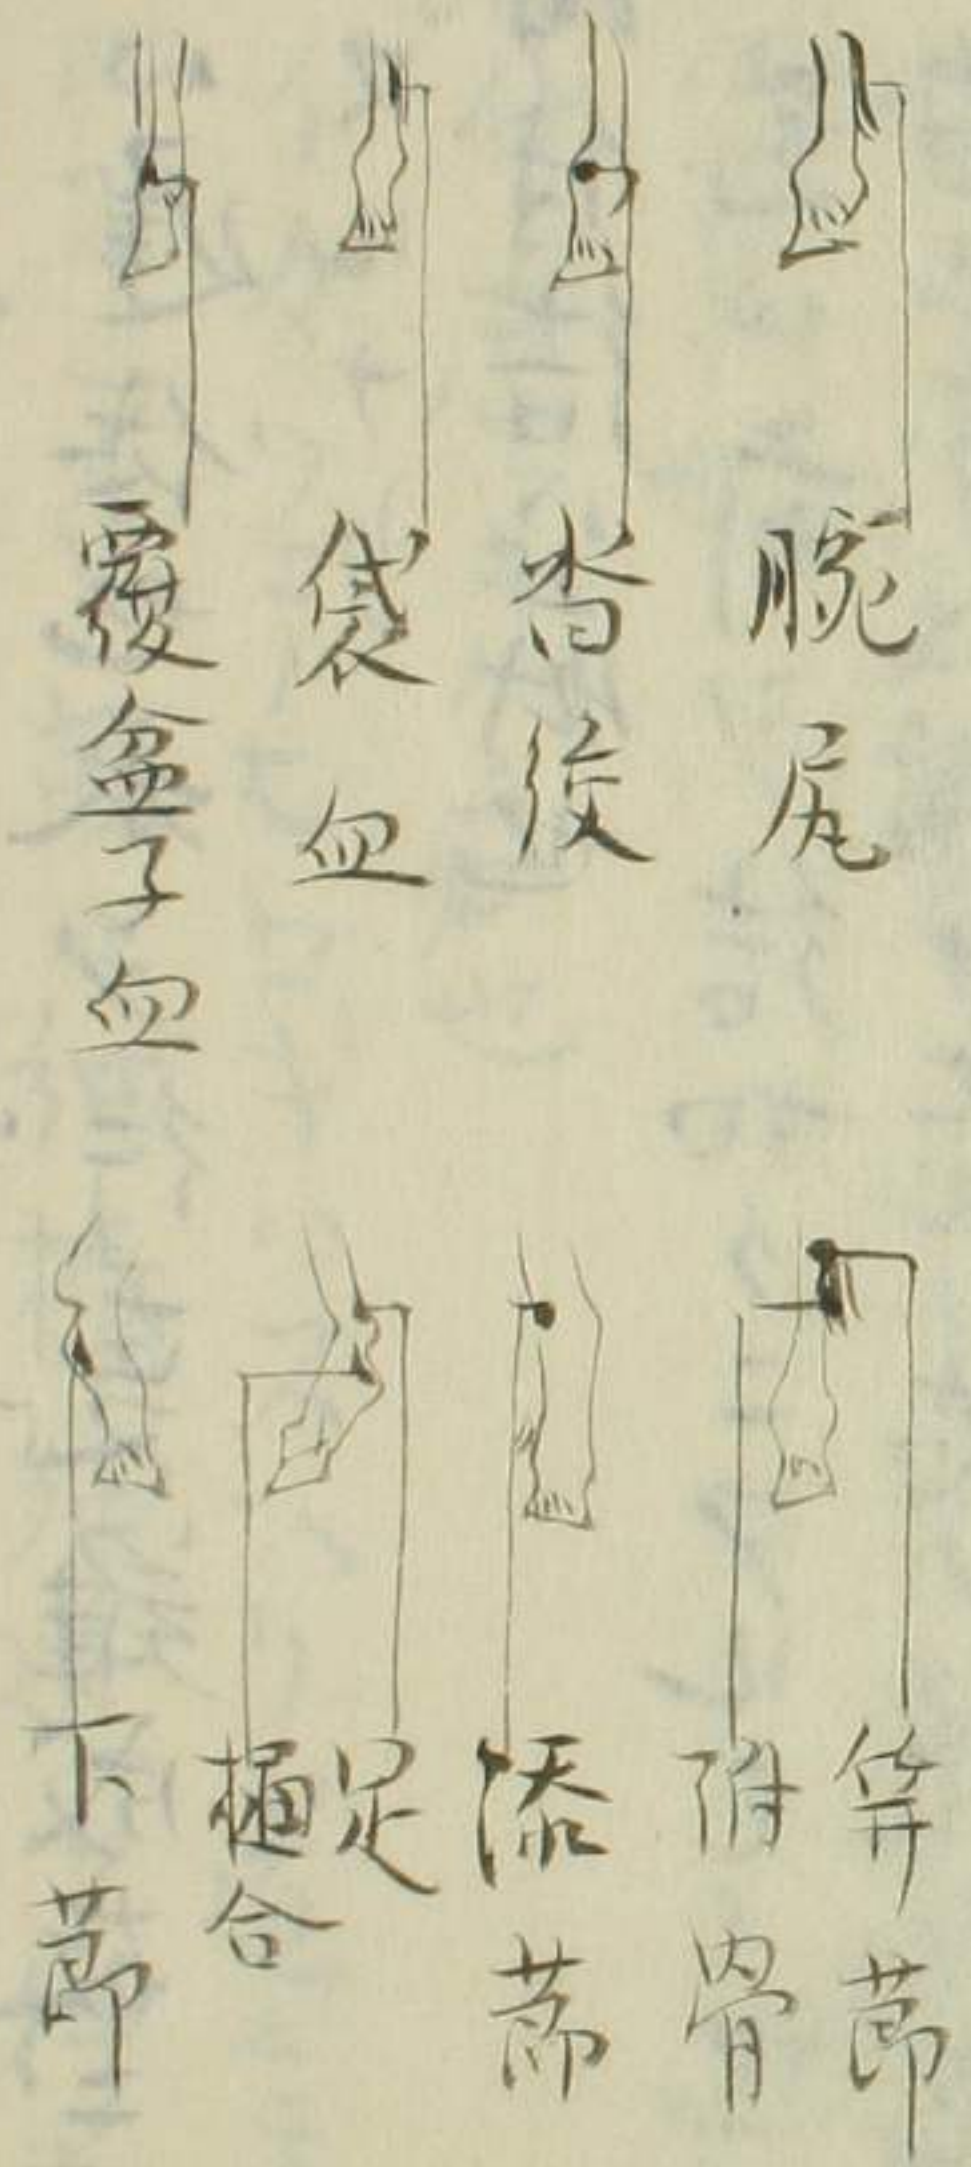 腕尻
沓後
袋血
覆盆子血
筓節
附骨
添節
足
樋合
下節